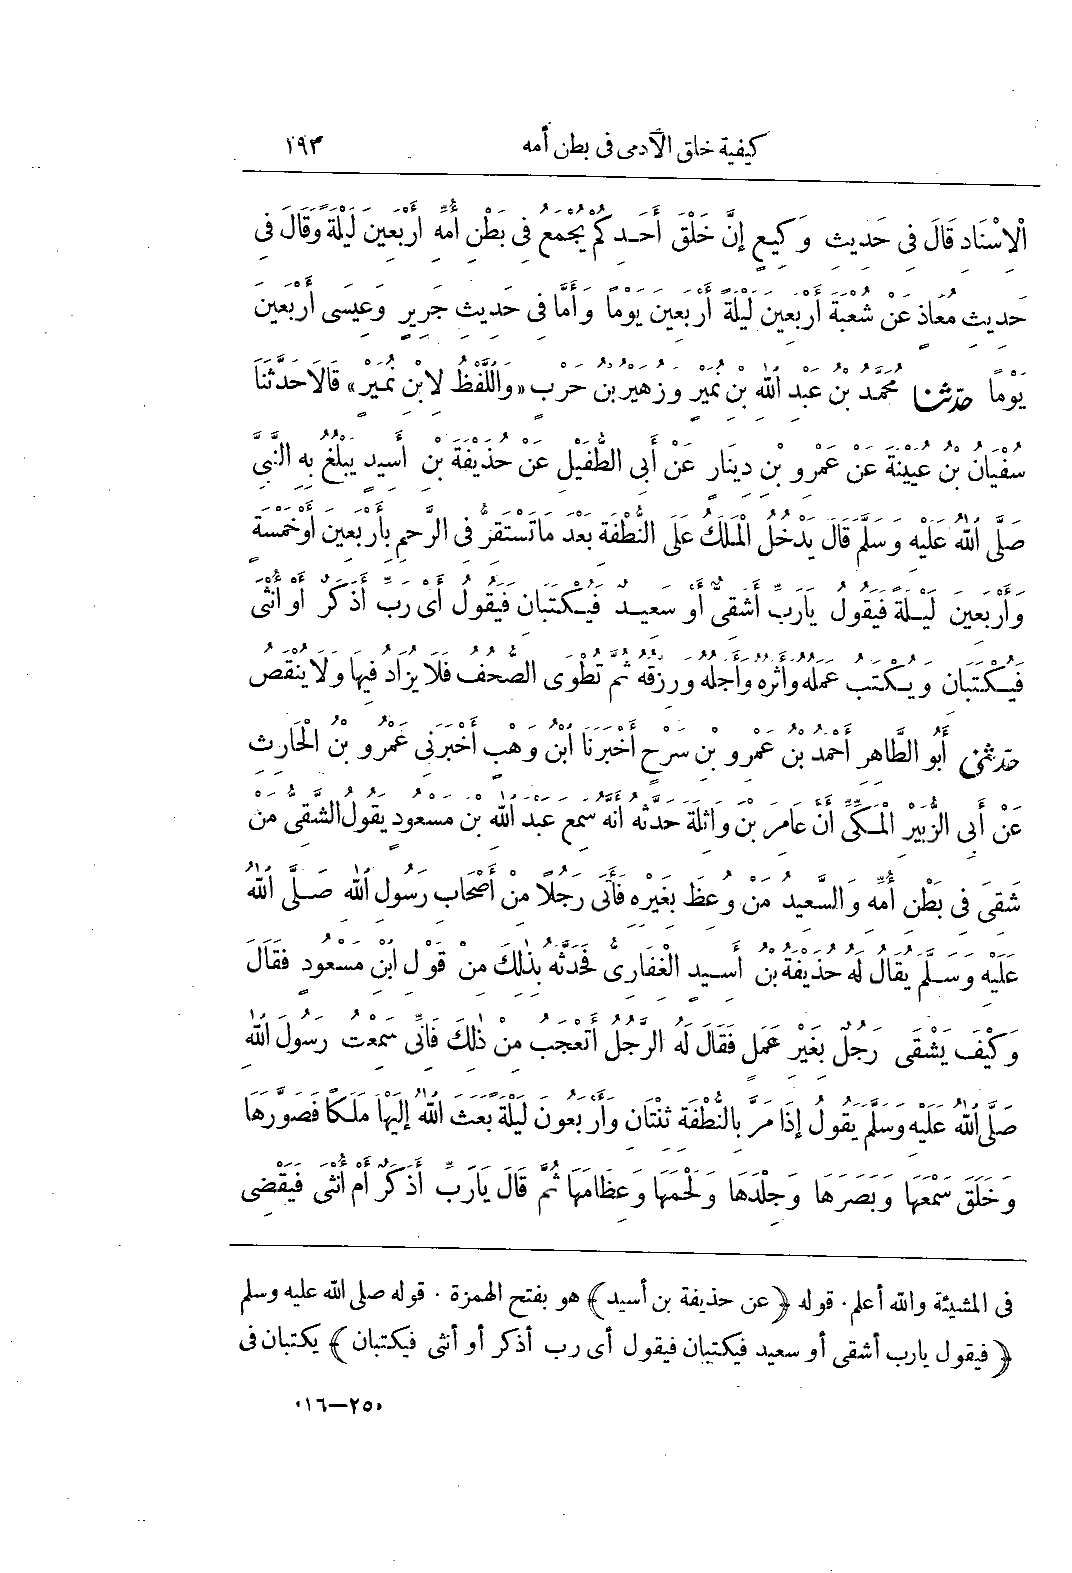 كيفية خلق الآدمى فى بطن أمه ١٩٣
الْإِسْنَادِ قَالَ فِى حَدِيثِ وَكِيعٍ إِنَّ خَلْقَ أَحَدِكُمْ يُجْمَعُ فِى بَطْنِ أُمِّهِ أَرْبَعِينَ لَيْلَةً وَقَالَ فِى
حَدِيثِ مُعَاذٍ عَنْ شُعْبَةَ أَرْبَعِينَ لَيْلَةً أَرْبَعِينَ يَوْمًا وَأَمَّا فِى حَدِيثِ جَرِيرٍ وَعِيسَى أَرْبَعِينَ
يَوْمًا حَدَّثَنَا مُحَمَّدُ بْنُ عَبْدِ اللهِ بْنِ نُمَيْرٍ وَزُهَيْرُ بْنُ حَرْبٍ «وَاللَّفْظُ لِابْنِ نُمَيْرٍ» قَالَا حَدَّثَنَا
سُفْيَانُ بْنُ عُيَيْنَةَ عَنْ عَمْرِو بْنِ دِينَارٍ عَنْ أَبِى الطُّفَيْلِ عَنْ حُذَيْفَةَ بْنِ أَسِيدٍ يَبْلُغُ بِهِ النَّبِىَّ
صَلَّى اللهُ عَلَيْهِ وَسَلَّمَ قَالَ يَدْخُلُ الْمَلَكُ عَلَى النُّطْفَةِ بَعْدَ مَا تَسْتَقِرُّ فِى الرَّحِمِ بِأَرْبَعِينَ أَوْ خَمْسَةٍ
وَأَرْبَعِينَ لَيْلَةً فَيَقُولُ يَارَبِّ أَشَقِىٌّ أَوْ سَعِيدٌ فَيُكْتَبَانِ فَيَقُولُ أَىْ رَبِّ أَذَكَرٌ أَوْ أُنْثَى
فَيُكْتَبَانِ وَيُكْتَبُ عَمَلُهُ وَأَثَرُهُ وَأَجَلُهُ وَرِزْقُهُ ثُمَّ تُطْوَى الصُّحُفُ فَلَا يُزَادُ فِيهَا وَلَا يُنْقَصُ
حَدَّثَنِى أَبُو الطَّاهِرِ أَحْمَدُ بْنُ عَمْرِو بْنِ سَرْحٍ أَخْبَرَنَا ابْنُ وَهْبٍ أَخْبَرَنِى عَمْرُو بْنُ الْحَارِثِ
عَنْ أَبِى الزُّبَيْرِ الْمَكِّىِّ أَنَّ عَامِرَ بْنَ وَاثِلَةَ حَدَّثَهُ أَنَّهُ سَمِعَ عَبْدَ اللهِ بْنَ مَسْعُودٍ يَقُولُ الشَّقِىُّ مَنْ
شَقِىَ فِى بَطْنِ أُمِّهِ وَالسَّعِيدُ مَنْ وُعِظَ بِغَيْرِهِ فَأَتَى رَجُلًا مِنْ أَصْحَابِ رَسُولِ اللهِ صَلَّى اللهُ
عَلَيْهِ وَسَلَّمَ يُقَالُ لَهُ حُذَيْفَةُ بْنُ أَسِيدٍ الْغِفَارِىُّ فَحَدَّثَهُ بِذٰلِكَ مِنْ قَوْلِ ابْنِ مَسْعُودٍ فَقَالَ
وَكَيْفَ يَشْقَى رَجُلٌ بِغَيْرِ عَمَلٍ فَقَالَ لَهُ الرَّجُلُ أَتَعْجَبُ مِنْ ذٰلِكَ فَإِنِّى سَمِعْتُ رَسُولَ اللهِ
صَلَّى اللهُ عَلَيْهِ وَسَلَّمَ يَقُولُ إِذَا مَرَّ بِالنُّطْفَةِ ثِنْتَانِ وَأَرْبَعُونَ لَيْلَةً بَعَثَ اللهُ إِلَيْهَا مَلَكًا فَصَوَّرَهَا
وَخَلَقَ سَمْعَهَا وَبَصَرَهَا وَجِلْدَهَا وَلَحْمَهَا وَعِظَامَهَا ثُمَّ قَالَ يَارَبِّ أَذَكَرٌ أَمْ أُنْثَى فَيَقْضِى
فى المشيئة والله أعلم. قوله ﴿عن حذيفة بن أسيد﴾ هو بفتح الهمزة. قوله صلى الله عليه وسلم
﴿فيقول يارب أشقى أو سعيد فيكتبان فيقول أى رب أذكر أو أنثى فيكتبان﴾ يكتبان فى
«٢٥–١٦»